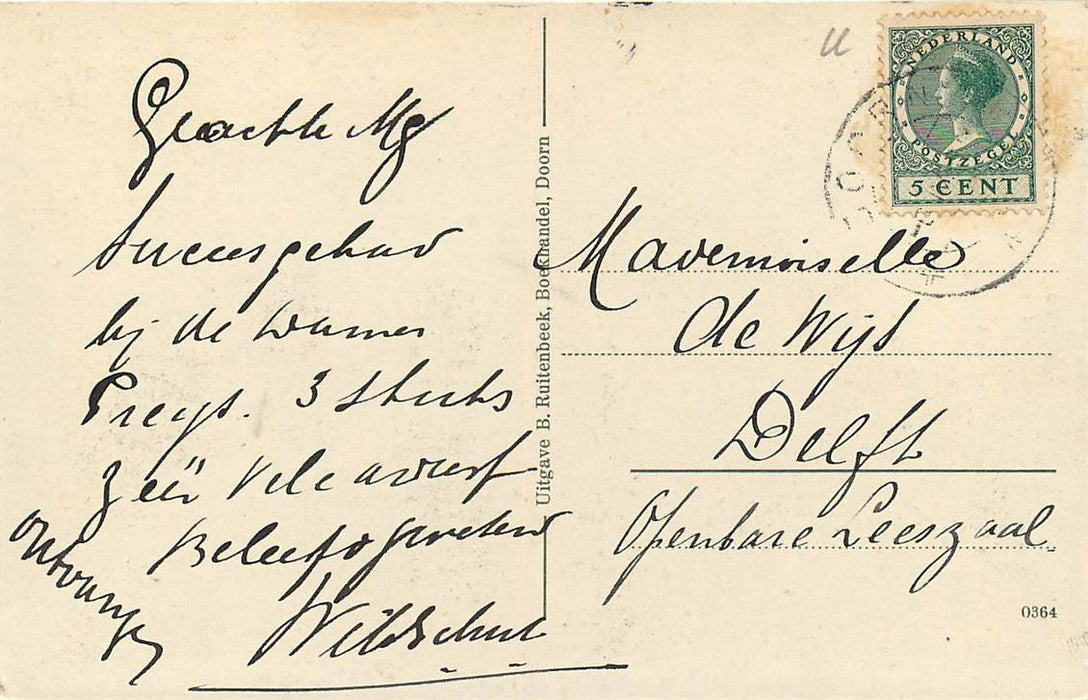 Geachte Mej
Succes gehad
bij de dames
Preyt. 3 stuks
zeer vele
Beleefd groetend
Wildschut
ontvangst
Uitgave B. Ruitenbeek, Boekhandel, Doorn
NEDERLAND
POSTZEGEL
5 CENT
DOORN
Mademoiselle
de Wijs
Delft
Openbare Leeszaal
0364